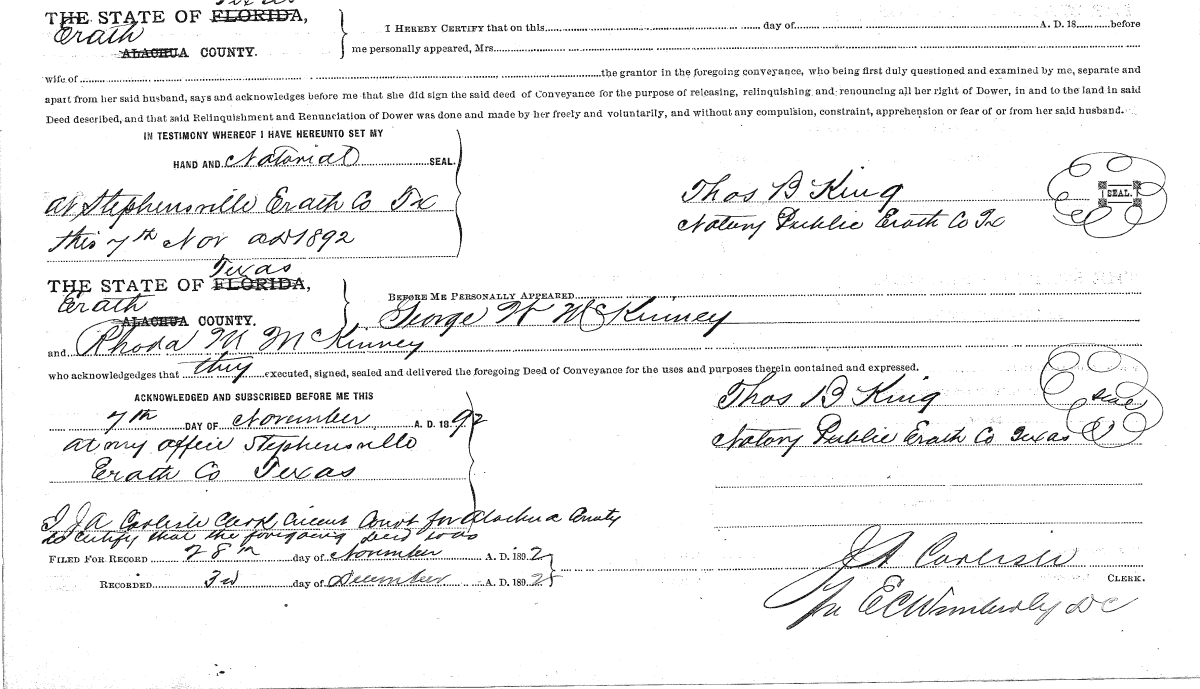 Texas
THE STATE OF FLORIDA,
Erath
ALACHUA COUNTY.
I HEREBY CERTIFY that on this day of A. D. 18 before
me personally appeared, Mrs.
wife of the grantor in the foregoing conveyance, who being first duly questioned and examined by me, separate and
apart from her said husband, says and acknowledges before me that she did sign the said deed of Conveyance for the purpose of releasing, relinquishing and renouncing all her right of Dower, in and to the land in said
Deed described, and that said Relinquishment and Renunciation of Dower was done and made by her freely and voluntarily, and without any compulsion, constraint, apprehension or fear of or from her said husband.
IN TESTIMONY WHEREOF I HAVE HEREUNTO SET MY
HAND AND Notarial SEAL.
at Stephensville Erath Co Tx
this 7th Nov AD 1892
Thos B King
SEAL.
Notary Public Erath Co Tx
Texas
THE STATE OF FLORIDA,
Erath
ALACHUA COUNTY.
BEFORE ME PERSONALLY APPEARED
George W McKinney
and Rhoda M McKinney
who acknowledges that they executed, signed, sealed and delivered the foregoing Deed of Conveyance for the uses and purposes therein contained and expressed.
ACKNOWLEDGED AND SUBSCRIBED BEFORE ME THIS
7th DAY OF November A. D. 1892
at my office Stephensville
Erath Co Texas
Thos B King
Seal
Notary Public Erath Co Texas
I J A Carlisle Clerk Circuit Court for Alachua County
do certify that the foregoing deed was
FILED FOR RECORD 28th day of November A. D. 1892
RECORDED 3rd day of December A. D. 1892
J A Carlisle
CLERK.
Per E C Wimberly DC